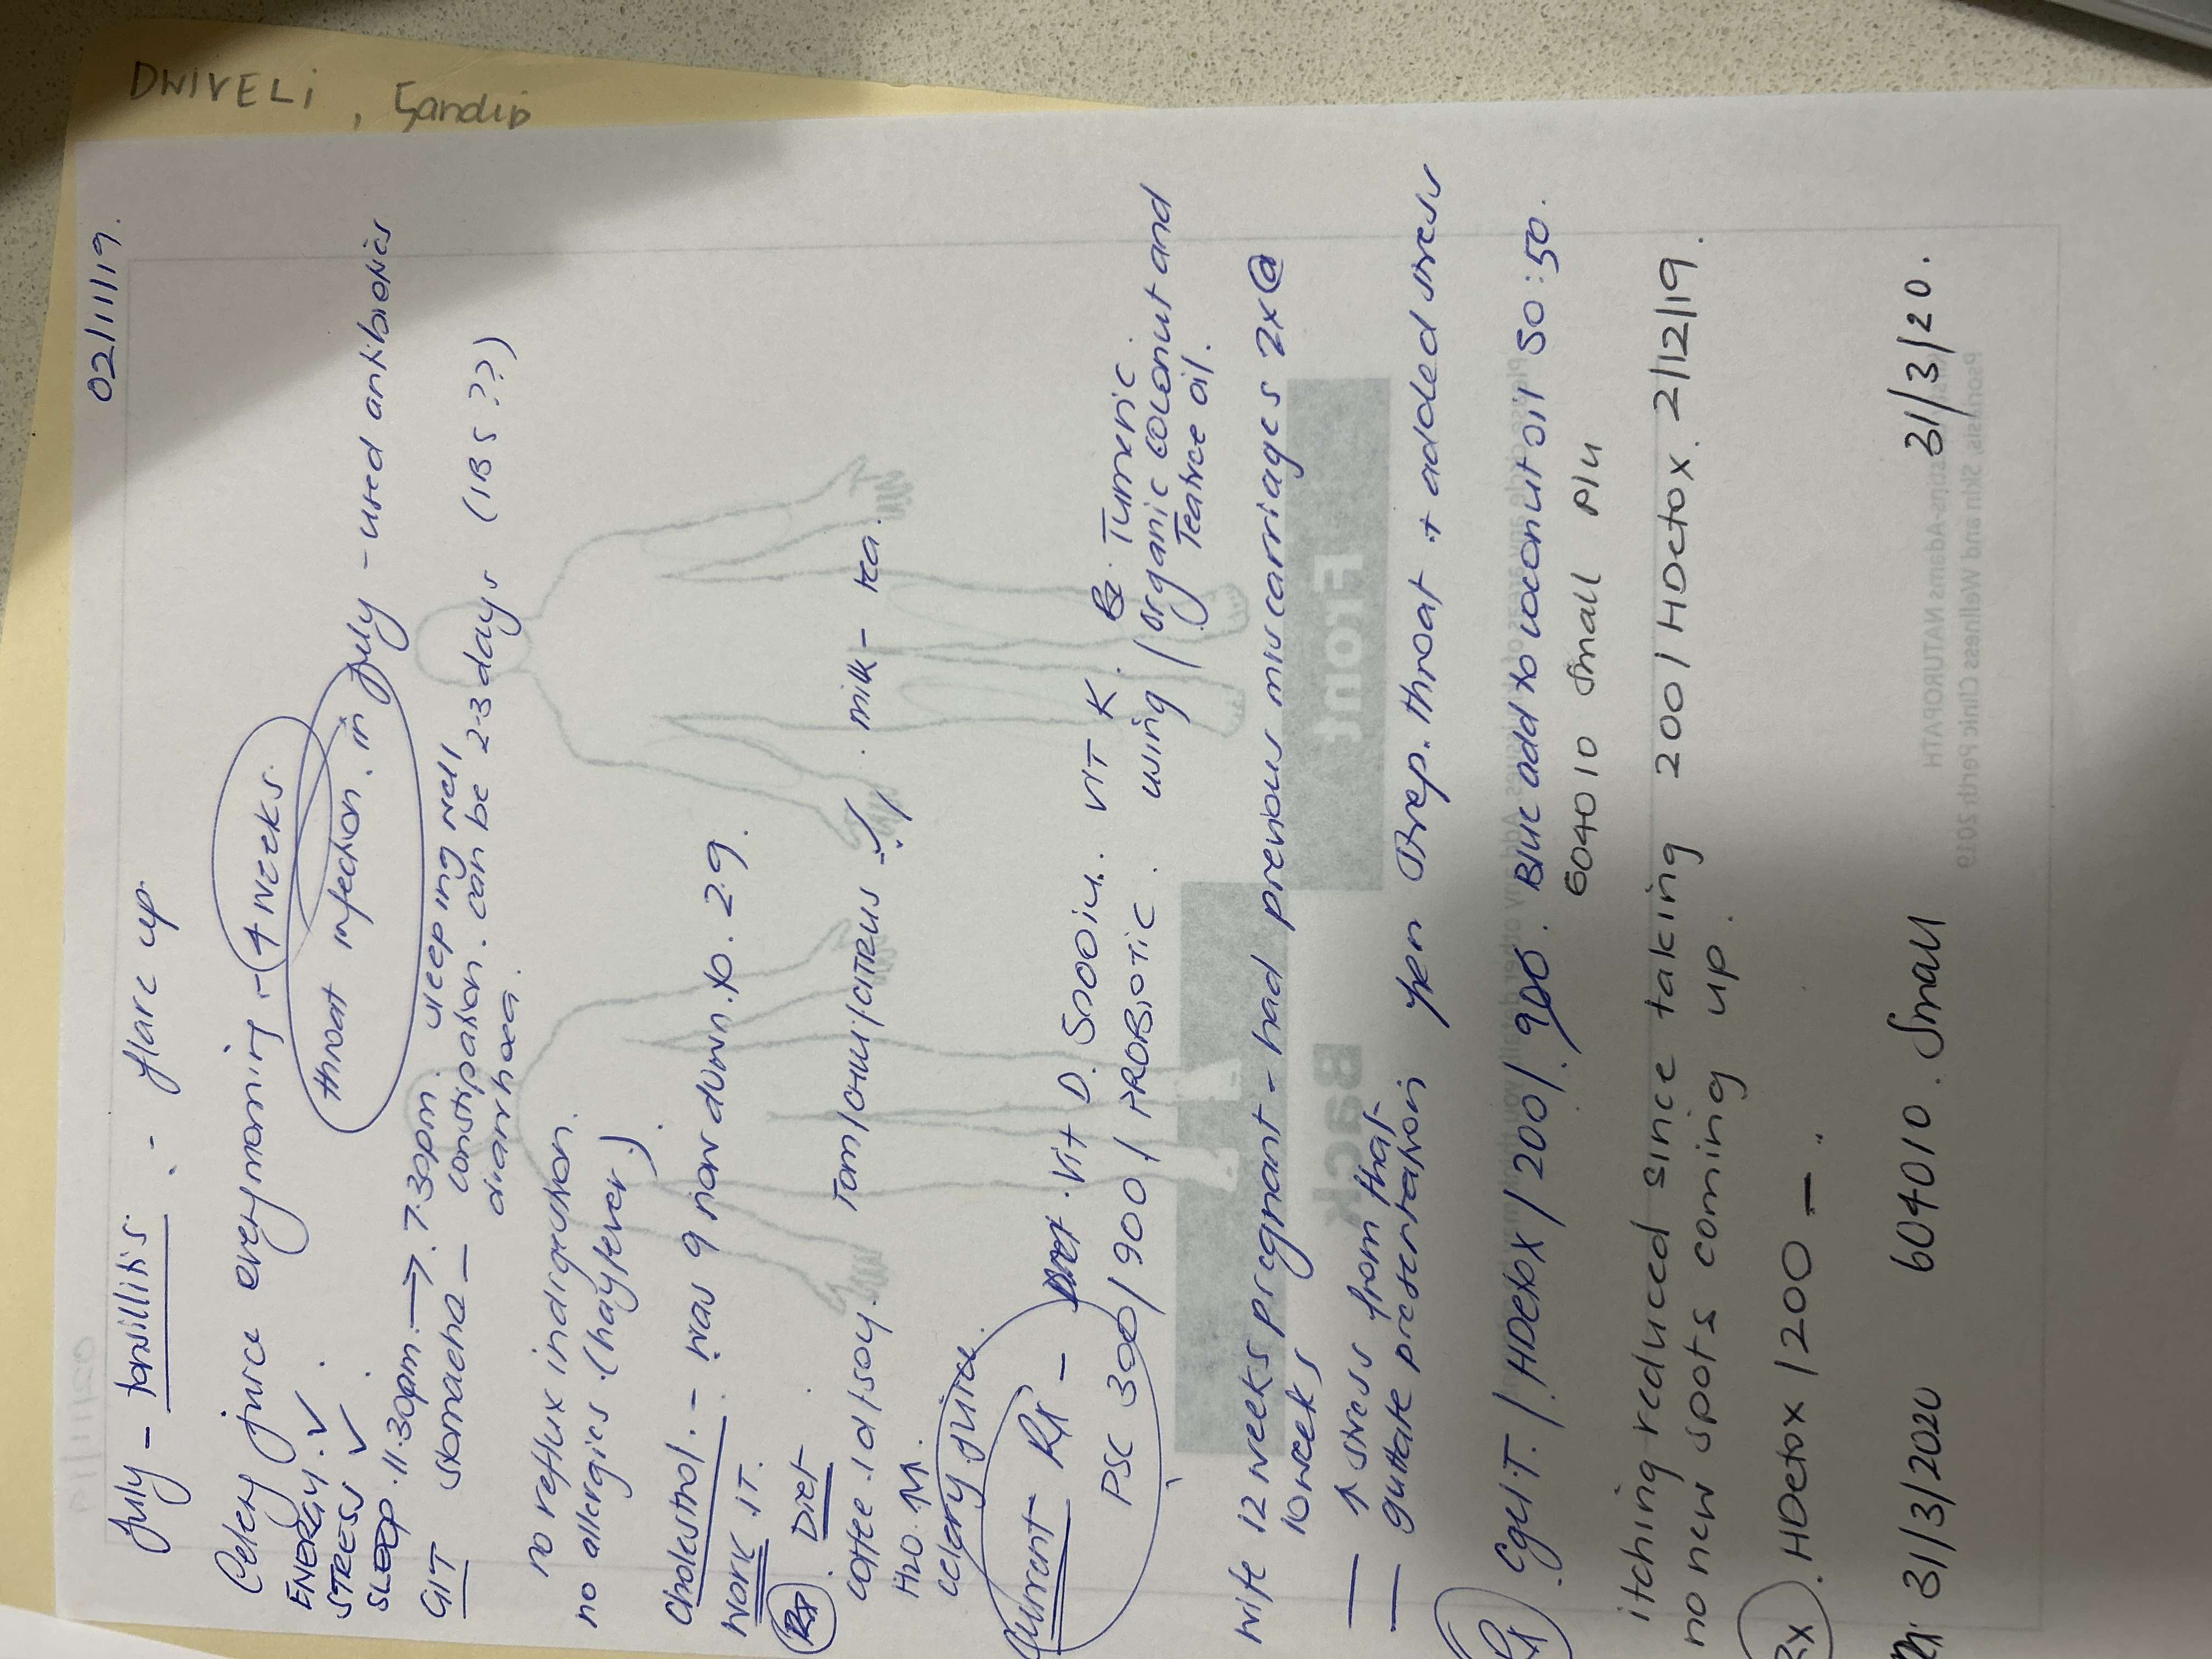 DWIVELI, Sandip
02/11/19.
July - tonsillitis. - flare up
Celery juice every morning - 4 weeks.
ENERGY. ✓
throat infection. in july - used antibiotics
STRESS ✓
SLEEP. 11.30pm. → 7.30pm. sleeping well
GIT stomache - constipation. can be 2-3 days (IBS??)
diarrhoea.
no reflux indigestion.
no allergies. (hayfever)
Cholestrol. - was 9 now down to. 2.9.
WORK. IT.
Rx. Diet.
coffee. 1 d/soy. Tom/CHILLI/CITRUS milk - tea.
H20. M.
celery juice.
Current Rx - Vit D. 5000iu. VIT K. Tumeric.
PSC 300/900/PROBIOTIC. using / organic coconut and
Teatree oil.
wife 12 weeks pregnant - had previous miscarriages 2x @
10 weeks
— ↑ stress from that
— guttate presentation yes strep. throat + added stress
Rx. HDetox/200/. 900. Blue add to coconut oil 50:50.
604010 Small
itching reduced since taking 200/HDetox. 2/12/19.
no new spots coming up.
Rx. HDetox/200 -
31/3/2020 604010. Small 31/3/20.
Front
Back
Psoriasis, Skin and Wellness Clinic Perth 2019
NATUROPATH